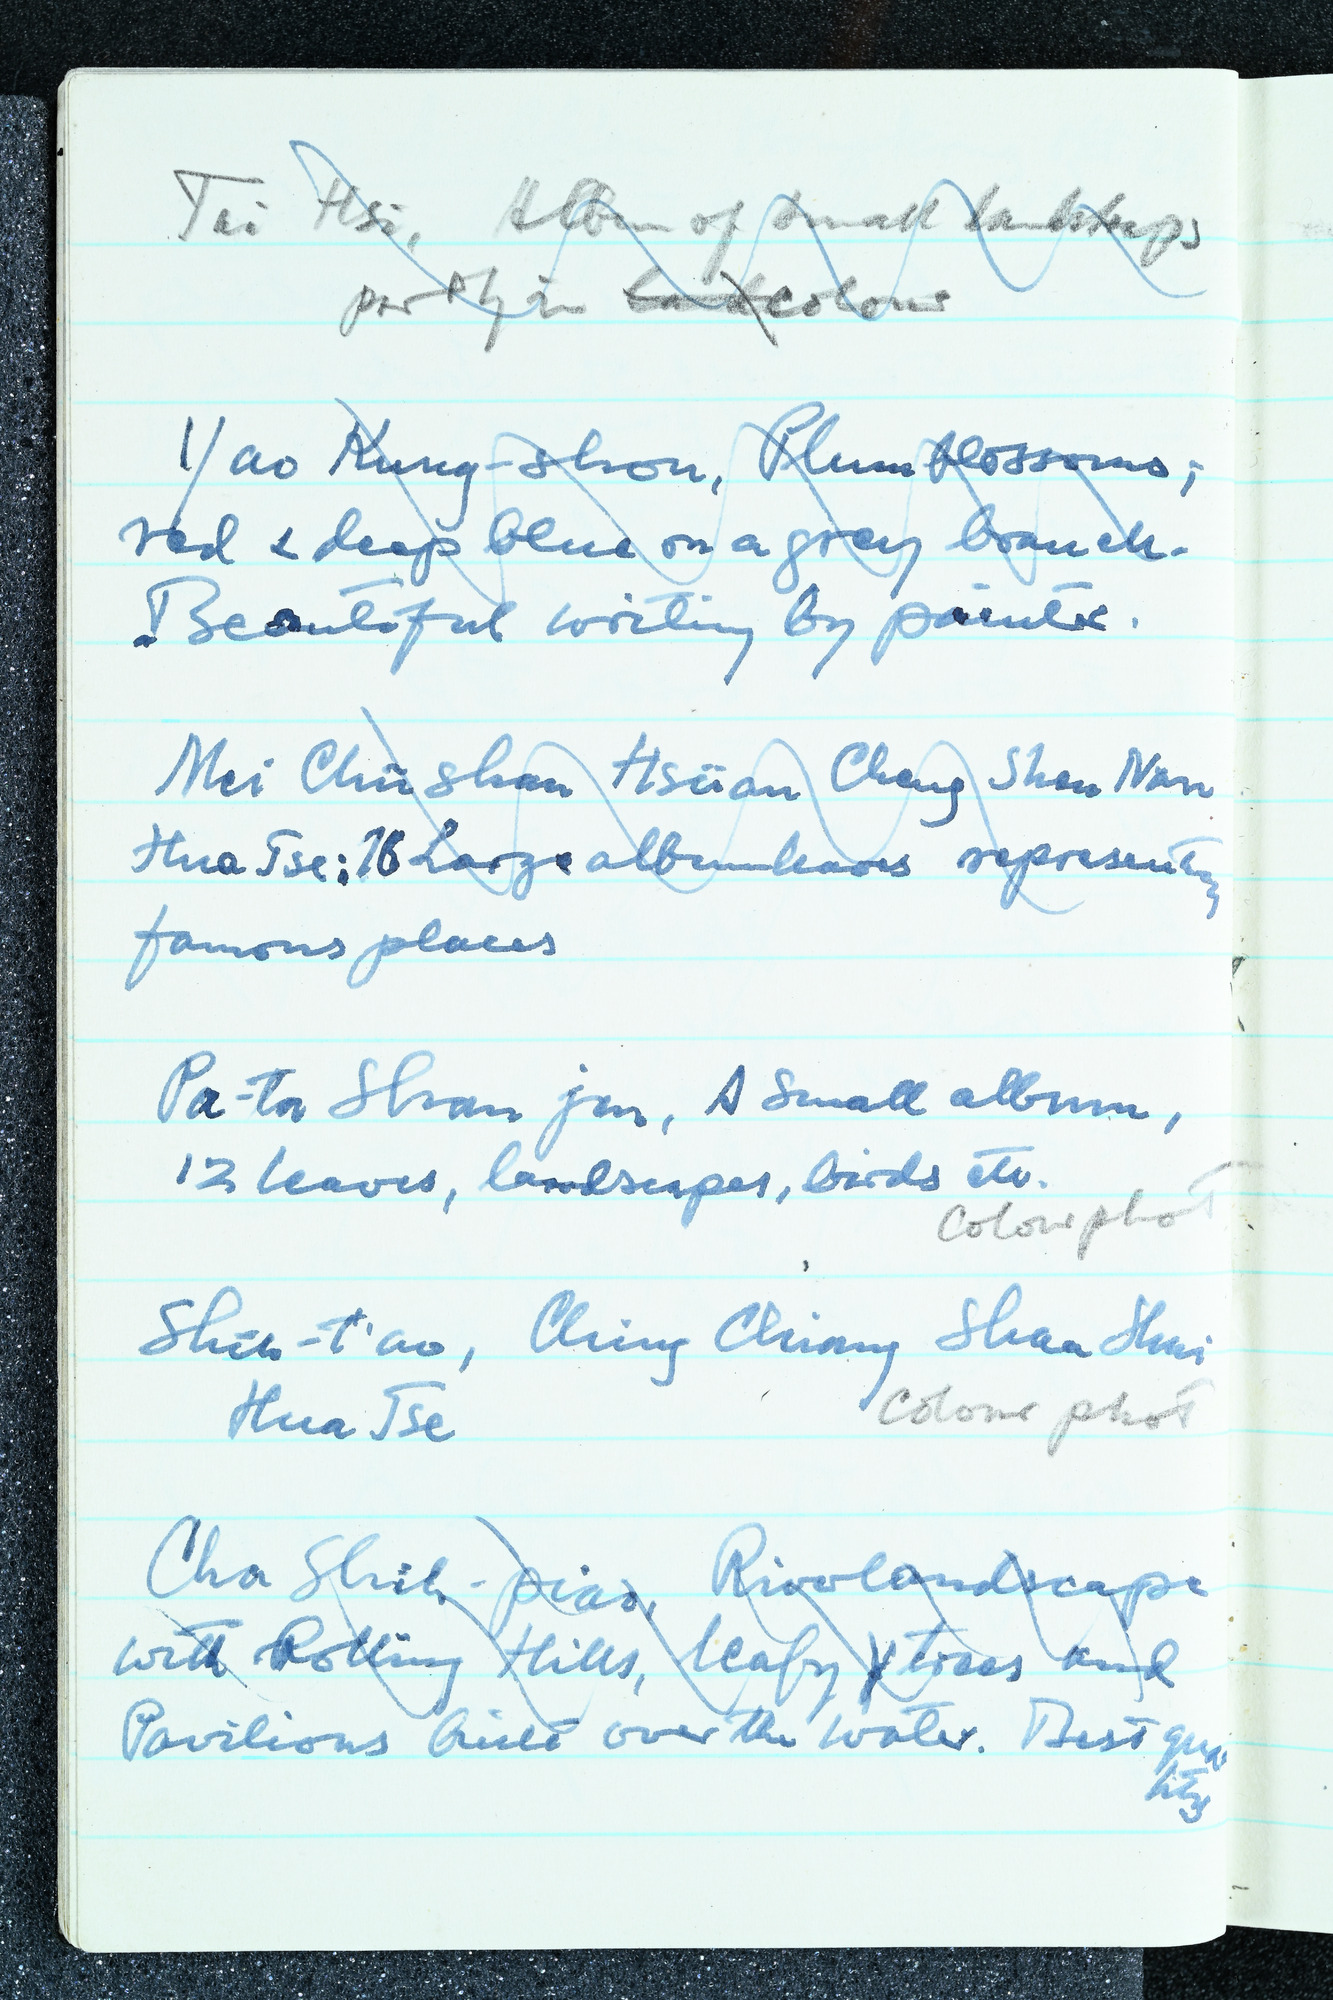 Tai Hsi, Album of small landskaps
partly in colour
Yao Kung-shou, Plumblossoms;
red & deep blue on a grey branch.
Beautiful writing by painter.
Mei Chü shan Hsüan Cheng Shan Nan
Hua Tse; 16 Large albumleaves representing
famous places
Pa-ta Shan jen, A small album,
12 leaves, landscapes, birds etc.
Colour phot
Shih-t'ao, Ching Chiang Shan Shui
Hua Tse
Colour phot
Cha Shih-piao, Riverlandscape
with Rolling Hills, leafy trees and
Pavilions built over the water. Best qua-
lity